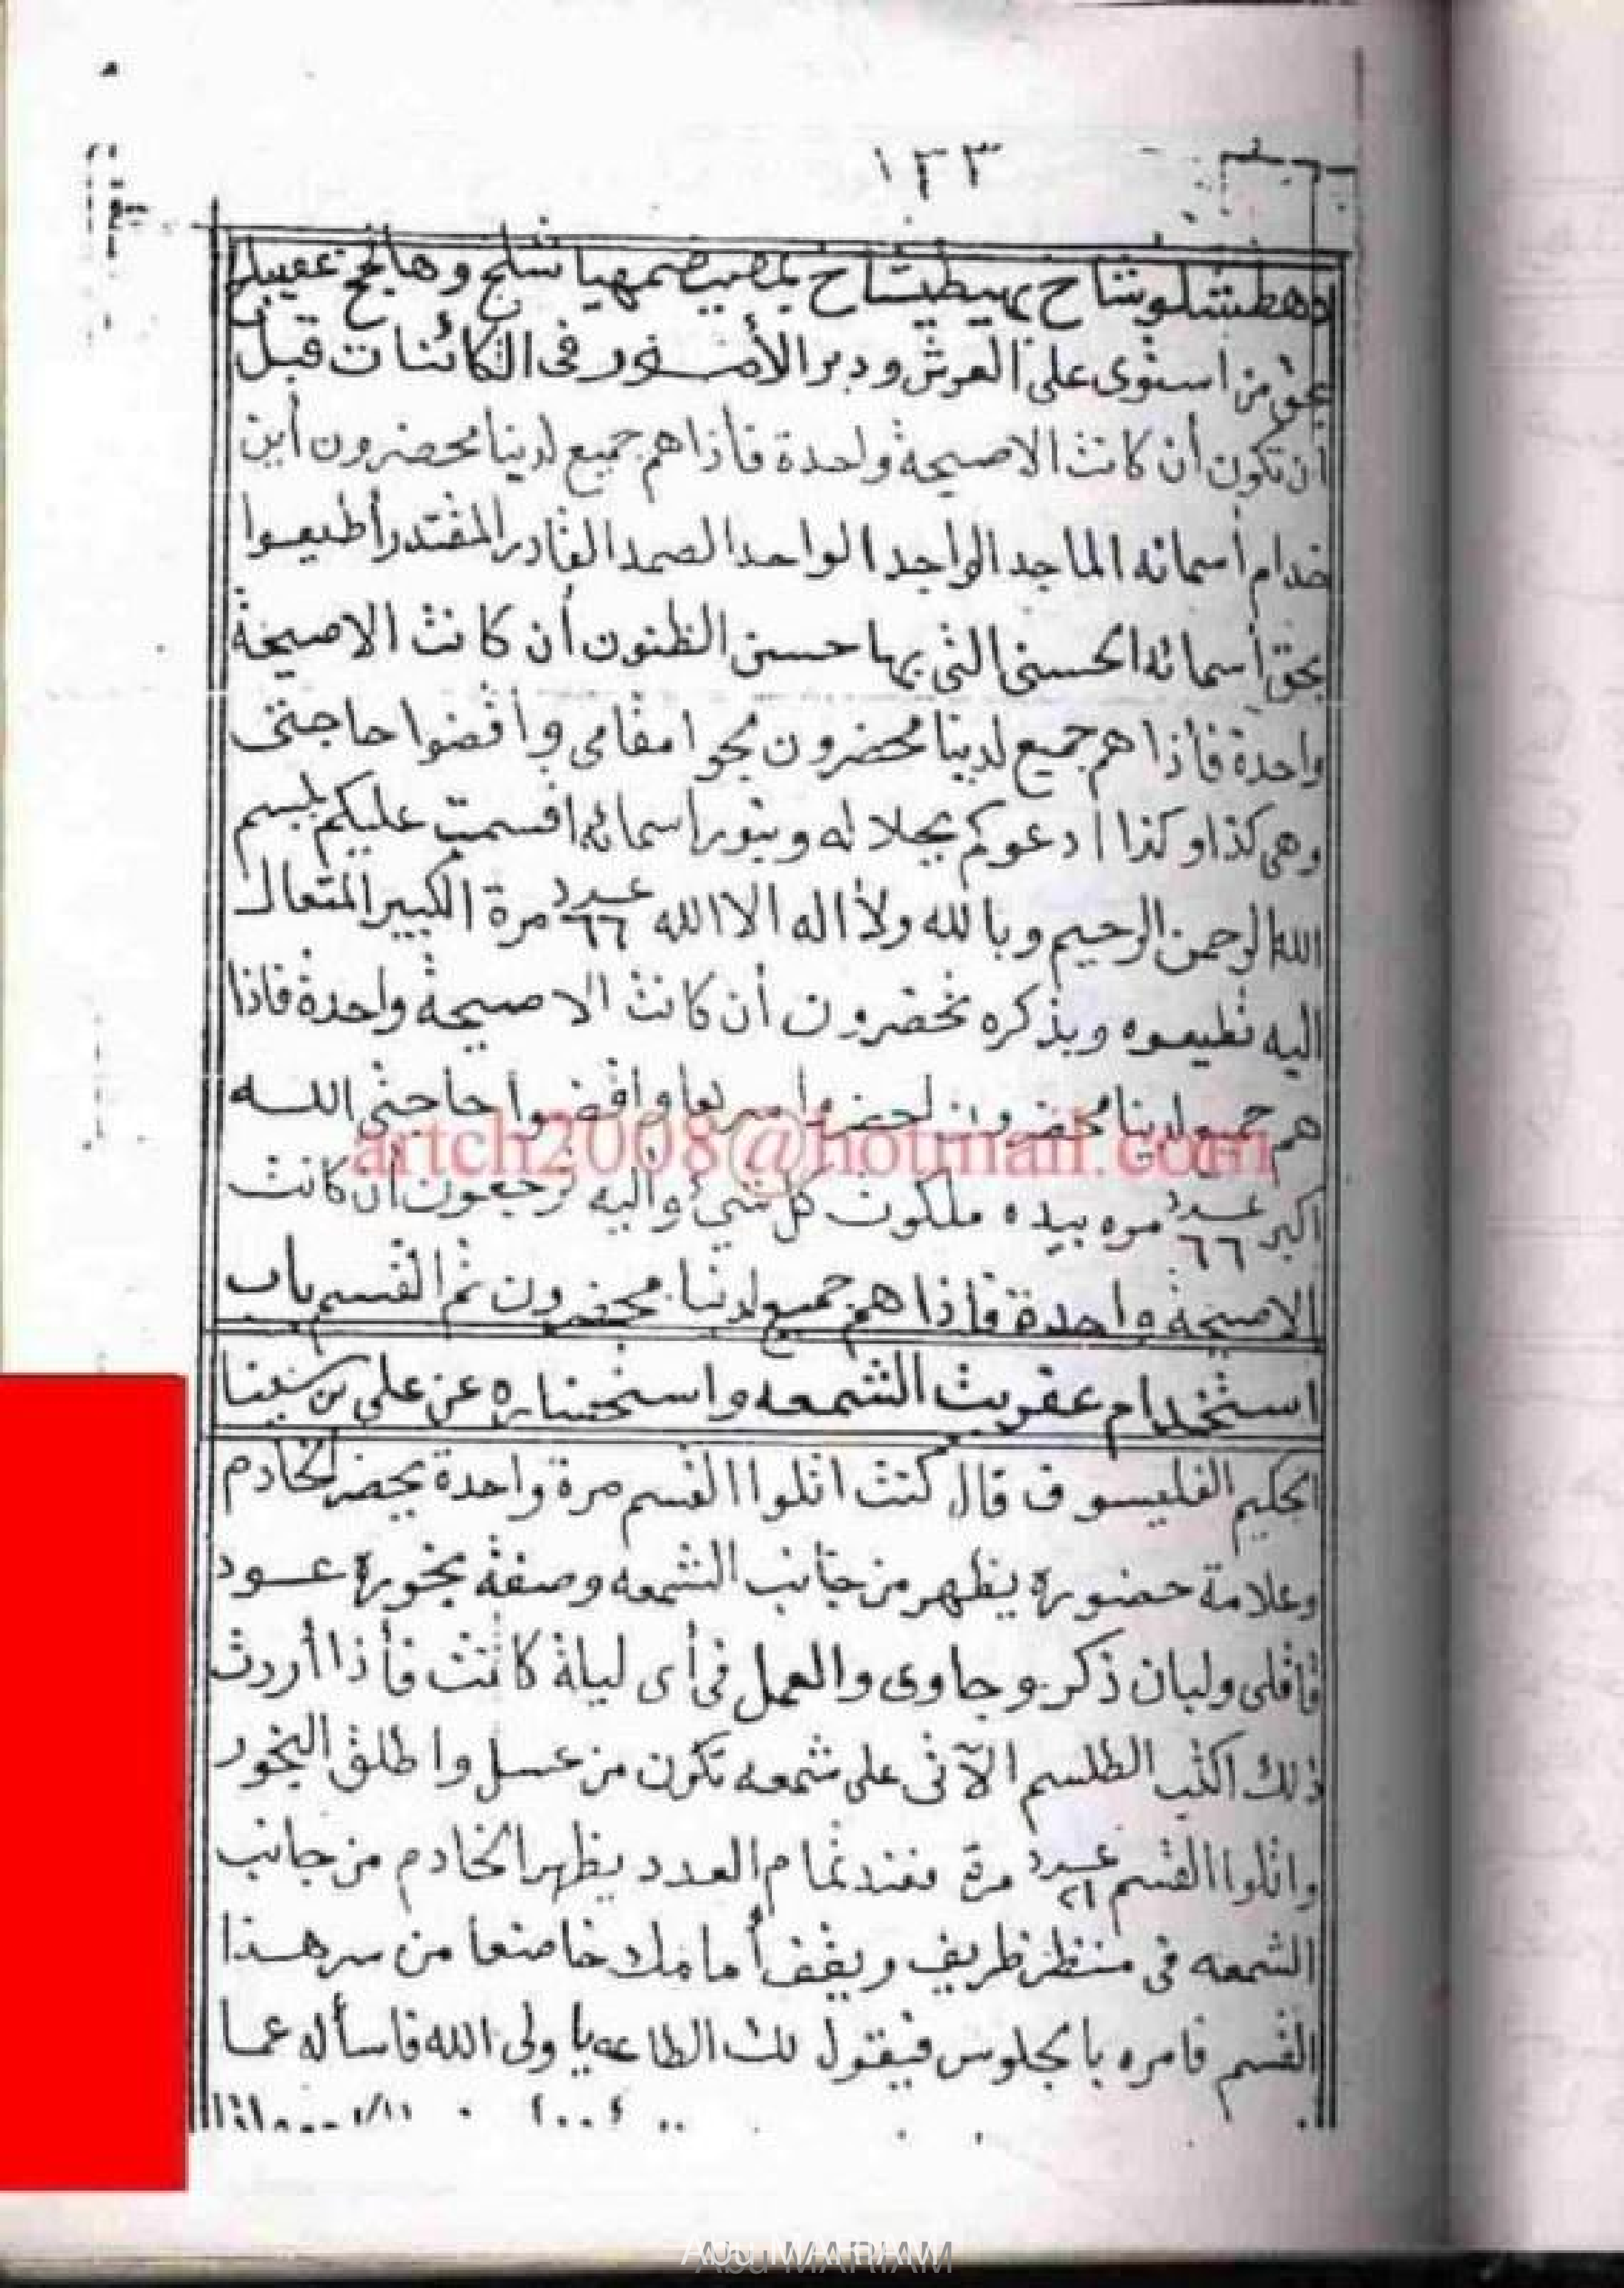 ١٣٣
بحق من استوى على العرش ودبر الأمور فى الكائنات قبل
أن تكون أن كانت الاصيحة واحدة فأذا هم جميع لدينا محضرون أين
خدام أسمائه الماجد الواجد الواحد الصمد القادر المقتدر أطيعوا
بحق أسمائه الحسنى التى بها حسن الظنون أن كانت الاصيحة
واحدة فأذا هم جميع لدينا محضرون مقامى وأقضوا حاجتى
وهى كذا وكذا أدعوكم بجلاله وبنور اسمائه اقسمت عليكم ببسم
الله الرحمن الرحيم وبالله ولا اله الا الله عدد ٦٦ مرة الكبير المتعال
اليه تطيعوه وبذكره تحضرون أن كانت الاصيحة واحدة فاذا
هم جميع لدينا محضرون احضروا سريعا واقضوا حاجتى الله
artch2008@hotmail.com
اكبر عدد ٦٦ مره بيده ملكوت كل شيئ واليه ترجعون أن كانت
الاصيحة واحدة فأذا هم جميع لدينا محضرون تم القسم باب
استخدام عفريت الشمعه واستحضاره عن على بن سينا
الحكيم الفليسوف قال كنت اتلوا القسم مرة واحدة يحضر الخادم
وعلامة حضوره يظهر من جانب الشمعه وصفة بخوره عود
قاقلى ولبان ذكر وجاوى والعمل فى أى ليلة كانت فأذا أردت
ذلك اكتب الطلسم الآتى على شمعه تكون من عسل واطلق البخور
واتلوا القسم عدد ٢١ مرة فعند تمام العدد يظهر الخادم من جانب
الشمعه فى منظر ظريف ويقف أمامك خاضعا من سر هذا
القسم فامره بالجلوس فيقول لك الطاعه يا ولى الله فاسأله عما
Abu MARIAM